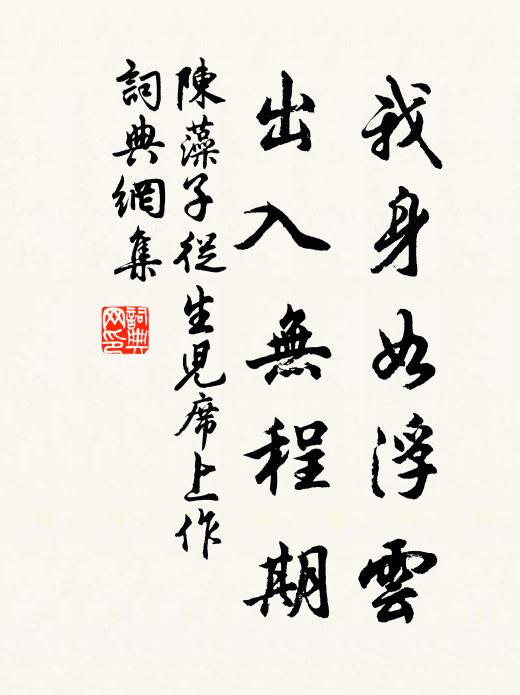 我身如浮雲
出入無程期
陳藻子從生児席上作
詞典網集
詞典网印